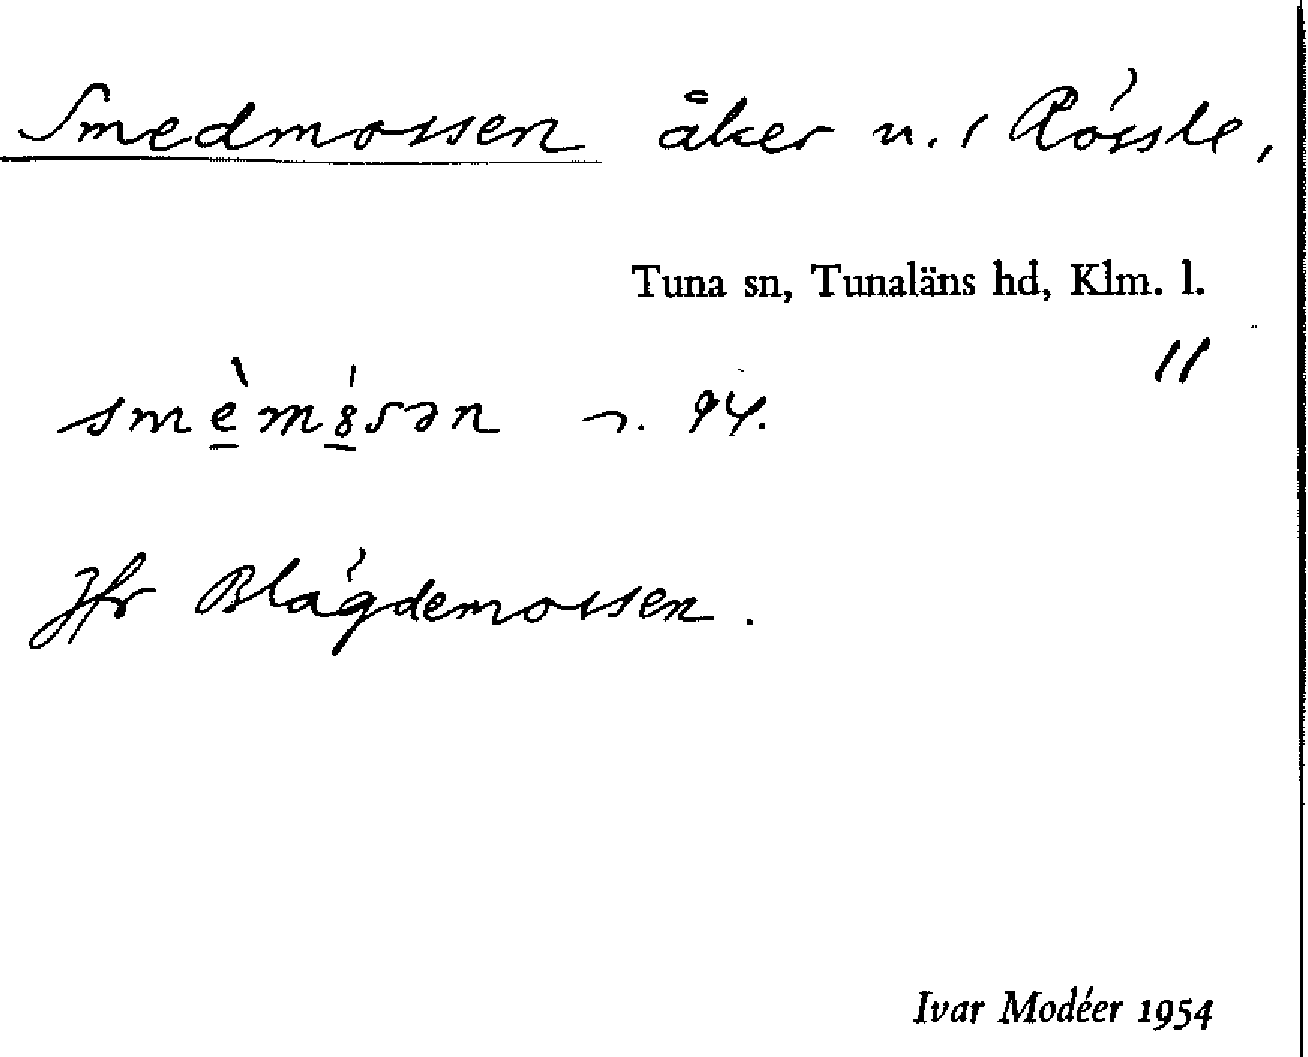 Smedmossen åker n. i Rössle,
Tuna sn, Tunaläns hd, Klm. l.
11
smèmȣ́sən n. 94.
Jfr Blågdemossen.
Ivar Modéer 1954